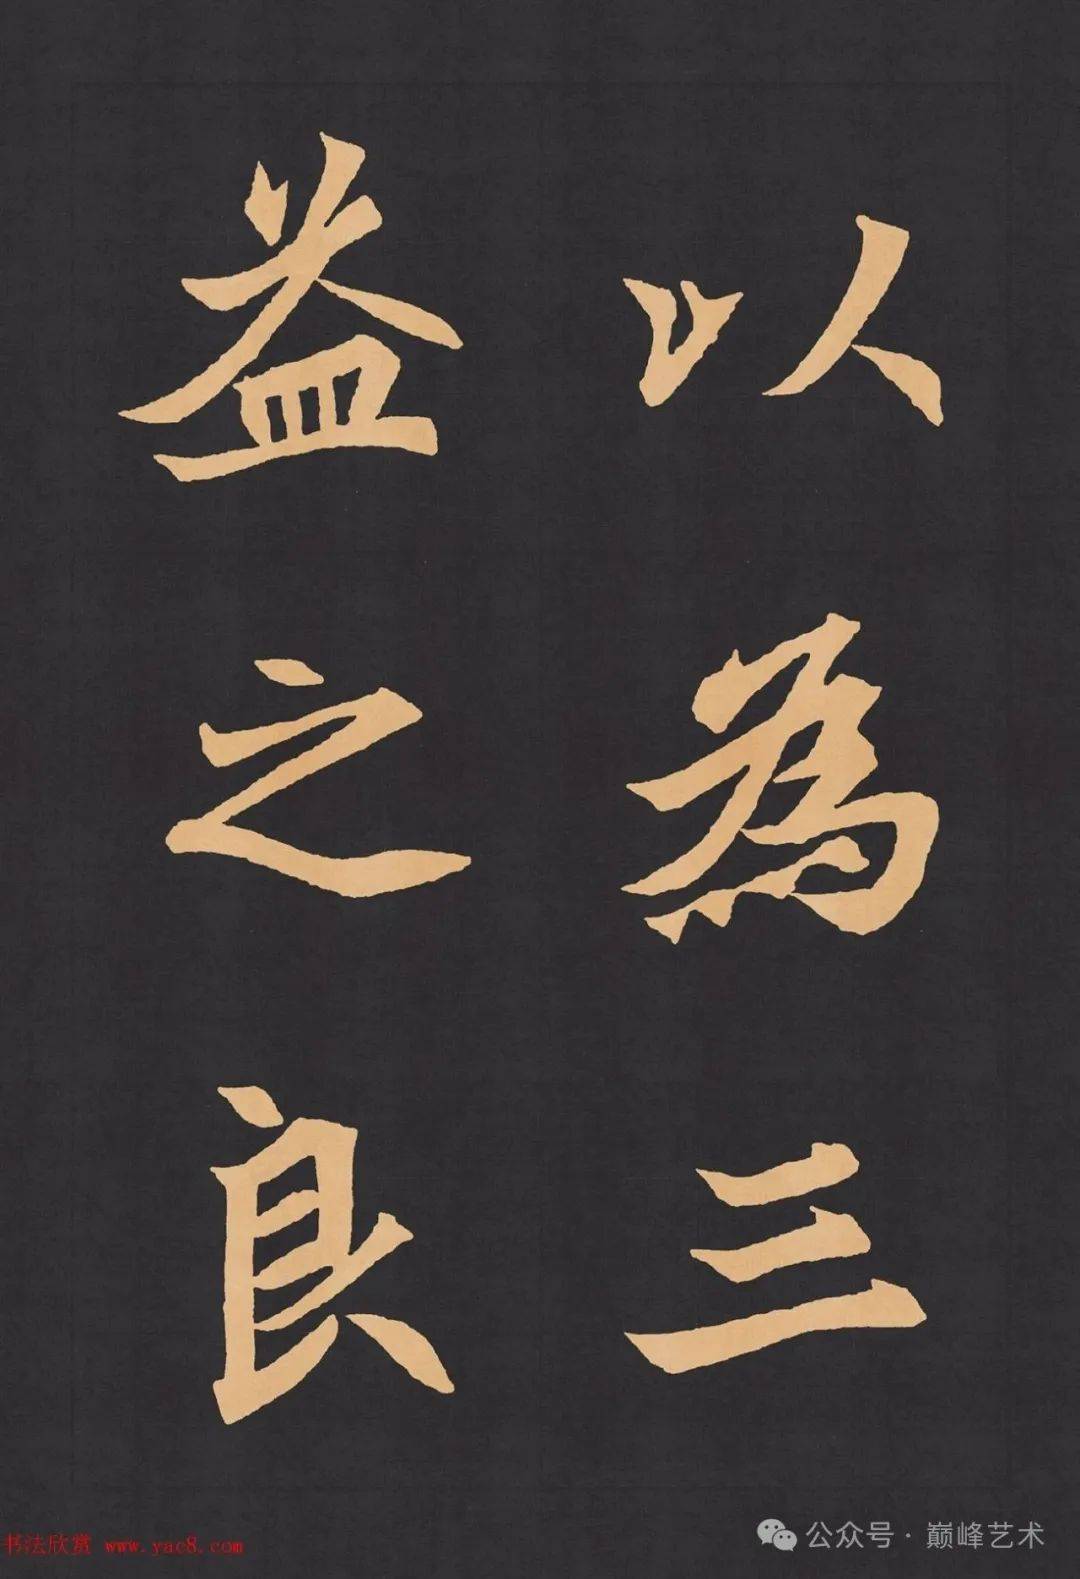 以為三
益之良
书法欣赏 www.yac8.com
公众号 · 巅峰艺术